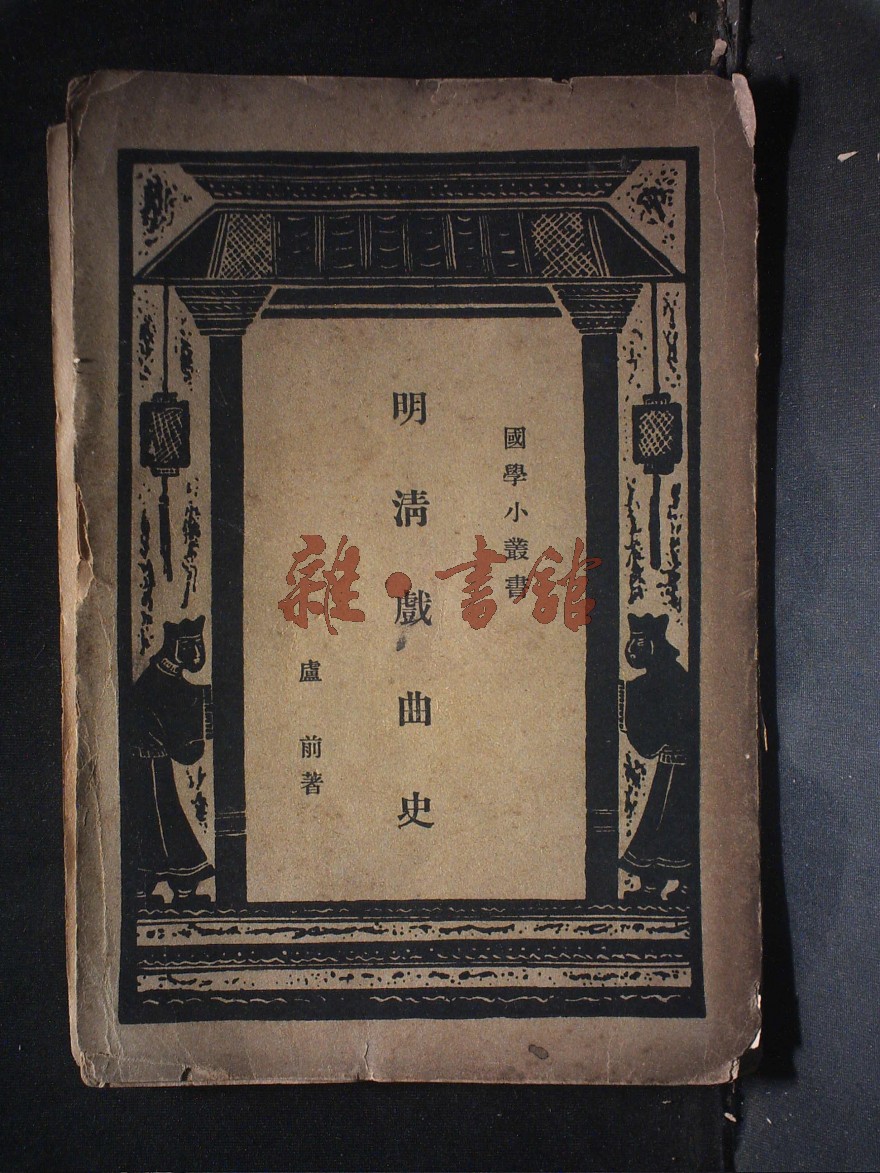 國學小叢書
明清戲曲史
盧前著
雜·書館